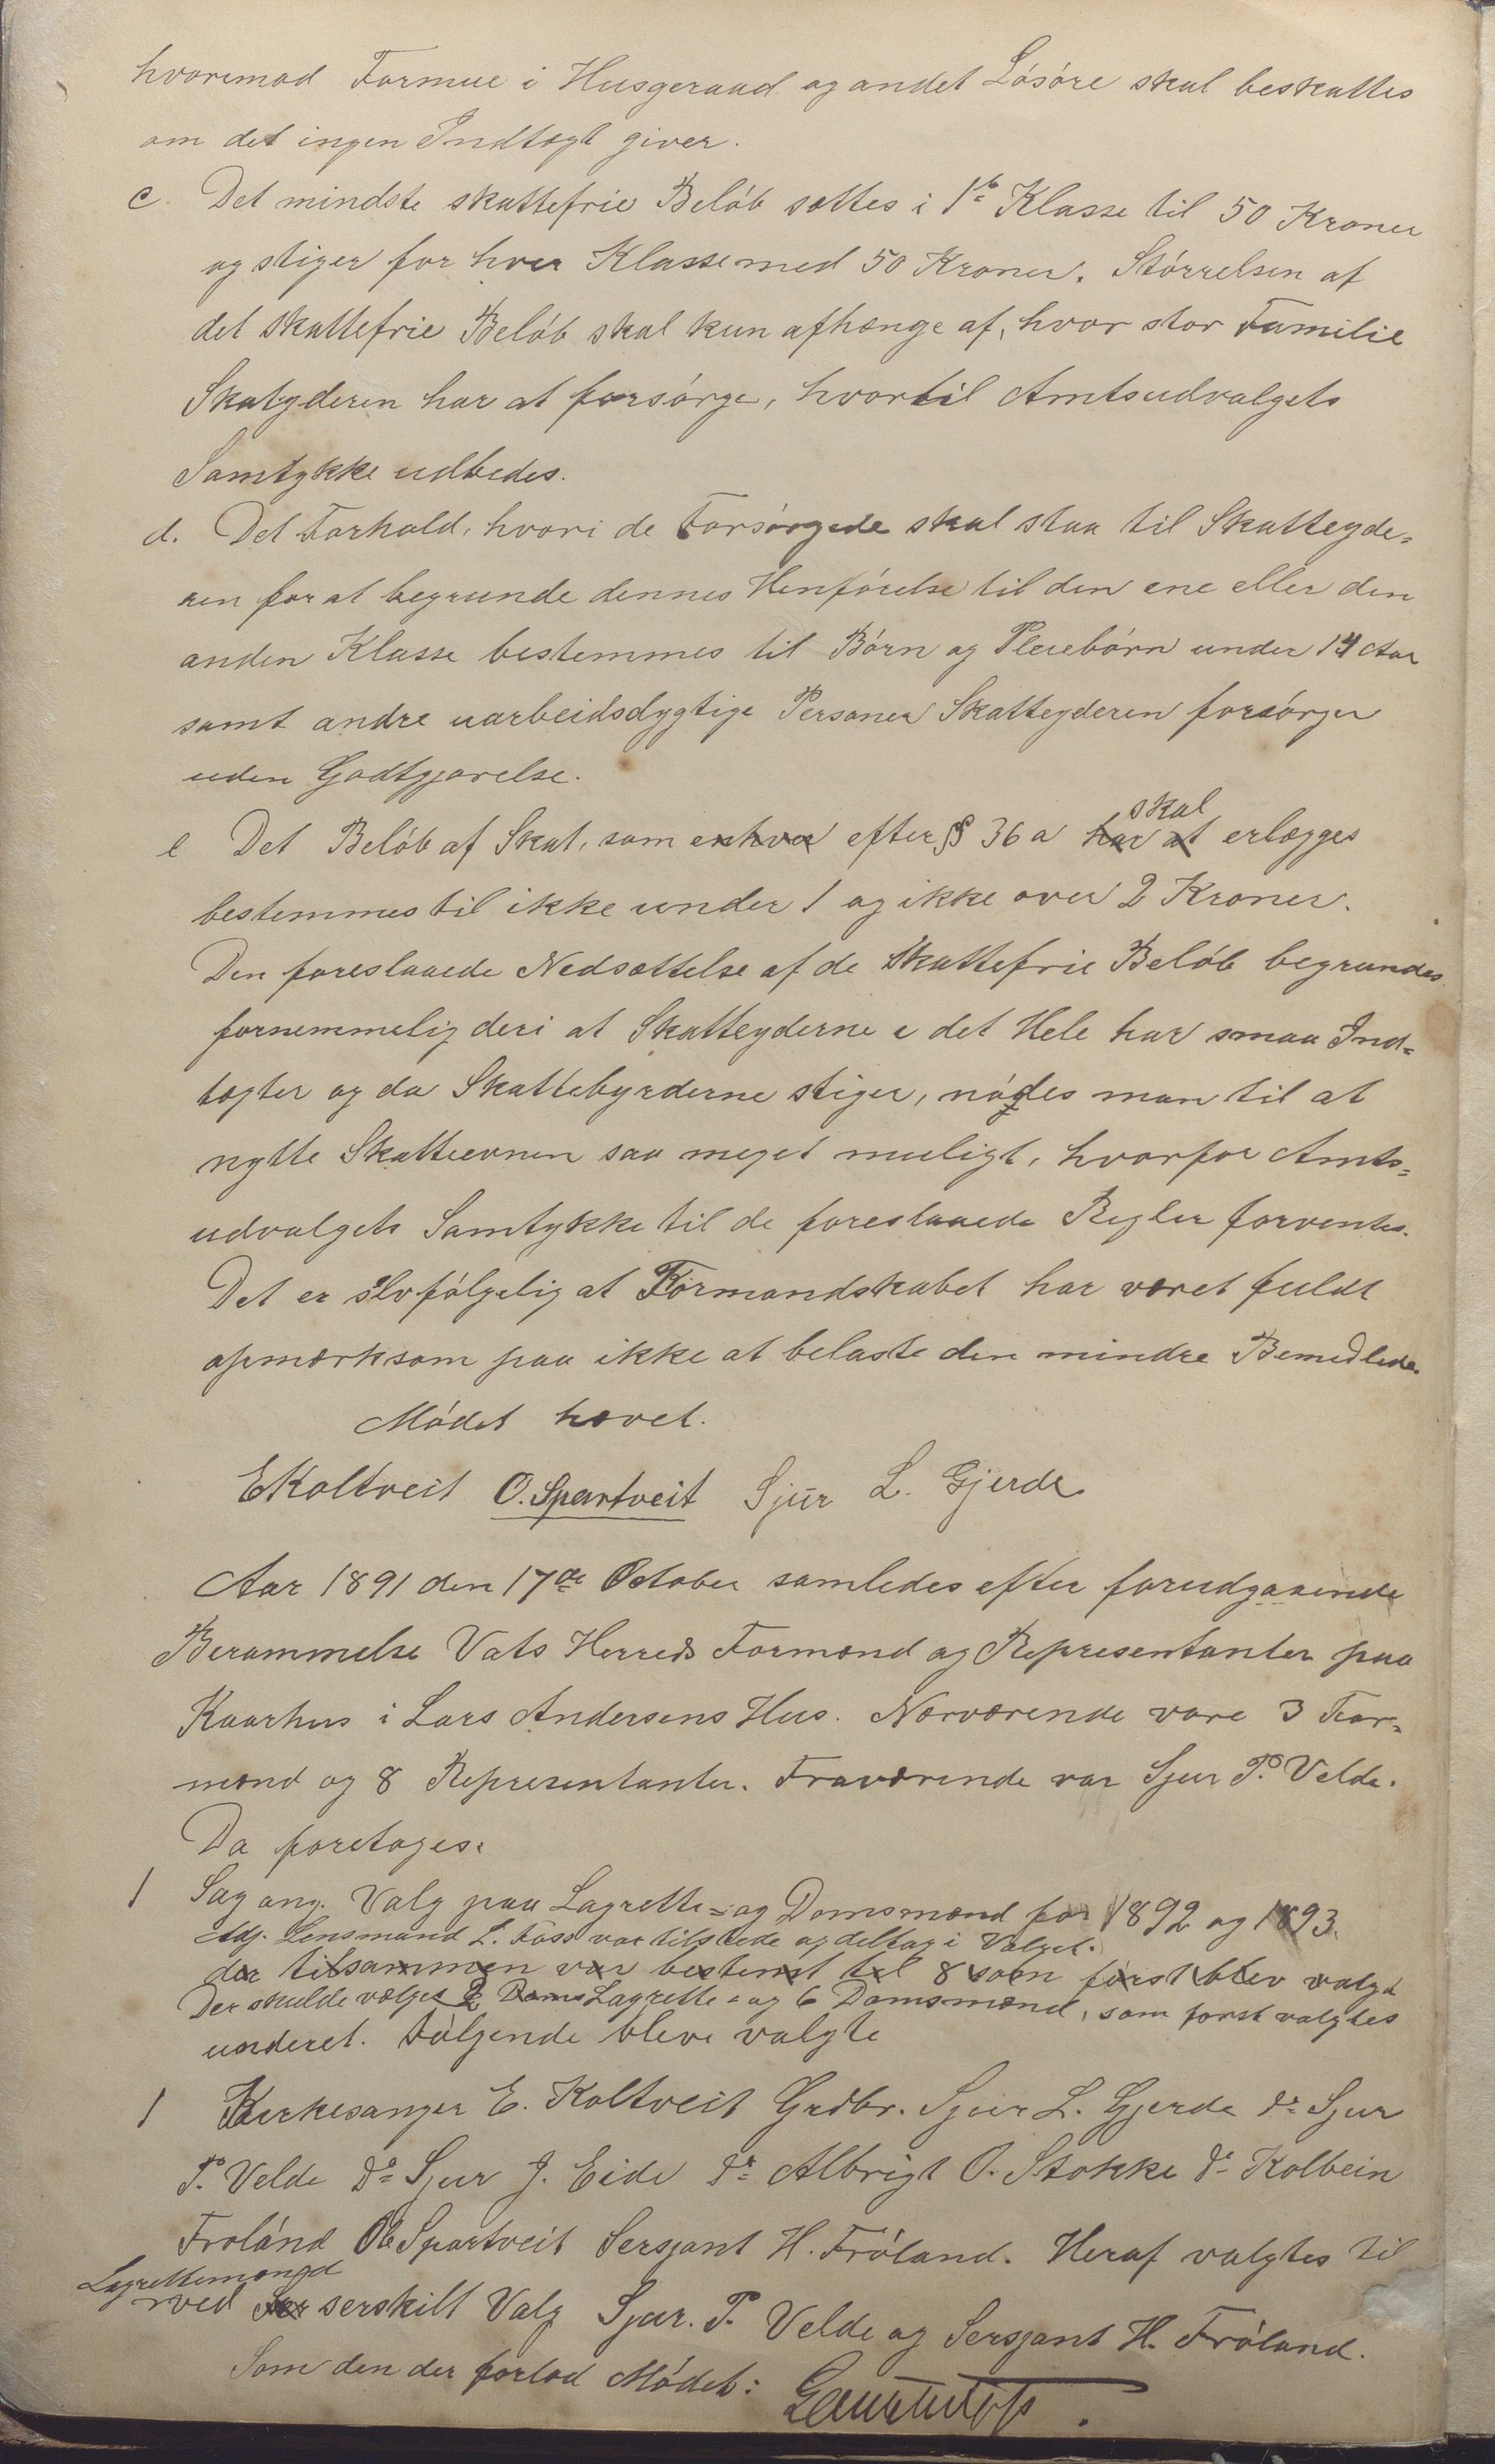 hvorimod Formue i Husgeraad og andet Lósóre skal beskattes
om det ingen Indtægt giver.
c. Det mindste skattefrie Belób sættes i 1ste Klasse til 50 Kroner
og stiger for hver Klasse med 50 Kroner. Stórrelsen af
det skattefrie Belób skal kun afhænge af, hvor stor Familie
Skatyderen har at forsórge, hvortil Amtsudvalgets
Samtykke udbedes.
d. Det Forhold, hvori de Forsórgede skal staa til Skatteyde=
ren for at begrunde dennes Henfórelse til den ene eller den
anden Klasse bestemmes til Bórn og Pleiebórn under 14 Aar
samt andre uarbeidsdygtige Personer Skatteyderen forsórger
uden Godtgjørelse.
skal
e Det Belób af Skat, som enhver efter § 36 a har at erlægges
bestemmes til ikke under 1 og ikke over 2 Kroner.
Den foreslaaede Nedsættelse af de skattefrie Belób begrundes
fornemmelig deri at Skatteyderne i det Hele har smaa Ind=
tægter og da Skattebyrderne stiger, nódes man til at
nytte Skatteevnen saa meget muligt, hvorfor Amts=
udvalgets Samtykke til de foreslaaede Regler forventes.
Det er selvfólgelig at Formandskabet har været fuldt
opmærksom paa ikke at belaste den mindre Bemedlede.
Módet hævet.
EKoltveit O. Spartveit Sjur L. Gjerde
Aar 1891 den 17de October samledes efter forudgaaende
Berammelse Vats Herreds Formænd og Representanter paa
Kaarhus i Lars Andersens Hus. Nærværende vare 3 For=
mænd og 8 Representanter. Fraværende var Sjur P. Velde.
Da foretoges:
1 Sag ang. Valg paa Lagrette= og Domsmænd for 1892 og 1893.
Adj. Lensmand L. Foss var tilstede og deltog i Valget.
der tilsammen var bestemt til 8 som først blev valgt
Der skulde vælges 2 Doms Lagrette= og 6 Domsmænd, som først valgtes
underet. Fólgende bleve valgte
1 Kirkesanger E. Koltveit Grdbr. Sjur L. Gjerde do Sjur
P. Velde do Sjur J. Eide do Albrigt O. Stokke do Kolbein
Fróland Ole Spartveit Sersjant H. Fróland. Heraf valgtes til
Lagrettemænd
ved serskilt Valg Sjur. P. Velde og Sersjant H. Fróland.
Som den der forlod Módet: